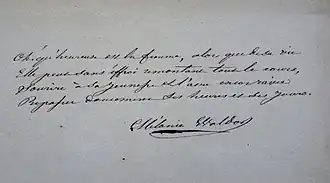 Oh! qu'heureuse est la femme, alors que de sa vie
Elle peut sans effroi remontant tout le cours,
Sourire à sa jeunesse et l'ame encor ravie
Repasser doucement ses heures et ses jours.
Mélanie Waldor